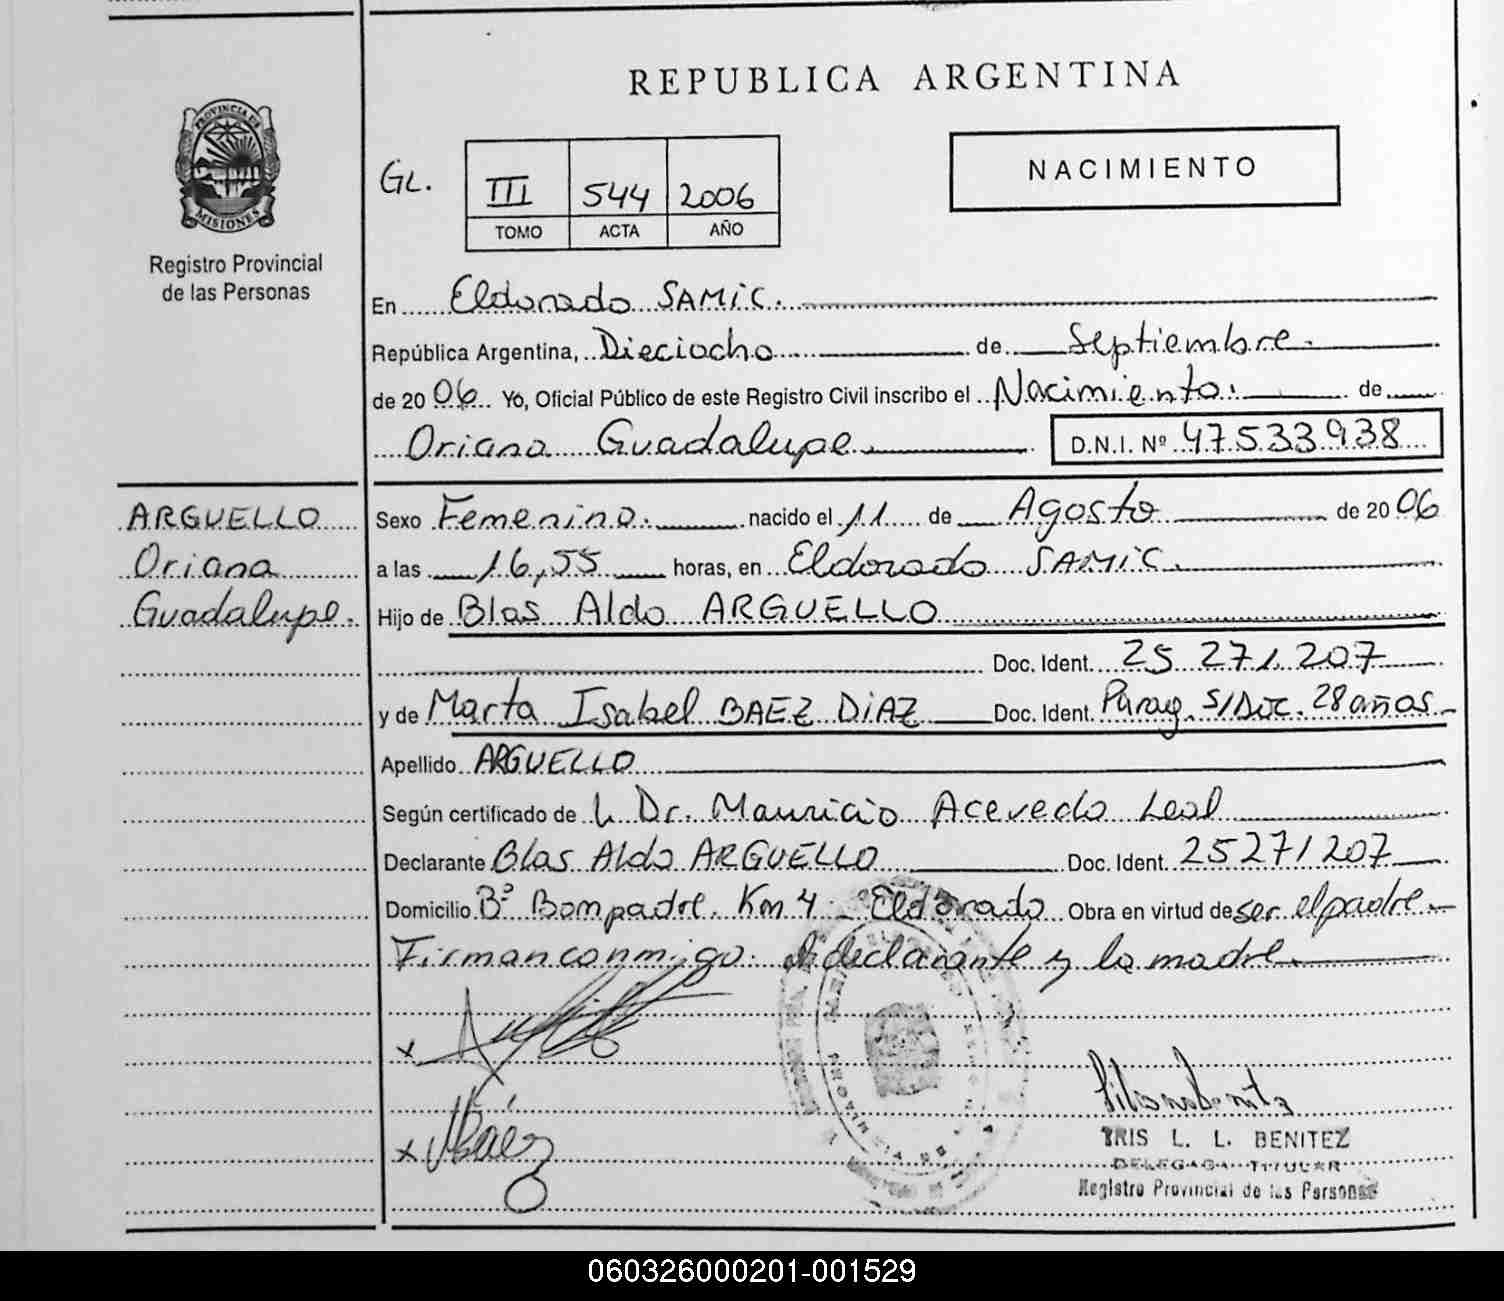 REPUBLICA ARGENTINA
PROVINCIA DE
MISIONES
Registro Provincial
de las Personas
GL.
III 544 2006
TOMO ACTA AÑO
NACIMIENTO
En Eldorado SAMIC.
República Argentina, Dieciocho de Septiembre.
de 2006 Yo, Oficial Público de este Registro Civil inscribo el Nacimiento. de
Oriana Guadalupe D.N.I. Nº 47.533.938
ARGUELLO
Oriana
Guadalupe.
Sexo Femenino. nacido el 11 de Agosto de 2006
a las 16,55 horas, en Eldorado SAMIC.
Hijo de Blas Aldo ARGUELLO
Doc. Ident. 25.271.207
y de Marta Isabel BAEZ DIAZ Doc. Ident. Parag. S/Doc. 28 años
Apellido ARGUELLO
Según certificado de L Dr. Mauricio Acevedo Leal
Declarante Blas Aldo ARGUELLO Doc. Ident. 25271207
Domicilio Bº Bompadre. Km 4 - Eldorado Obra en virtud de ser el padre.
Firman conmigo. el declarante y la madre.
x
x Baéz
IRIS L. L. BENITEZ
DELEGADA TITULAR
Registro Provincial de las Personas
060326000201-001529